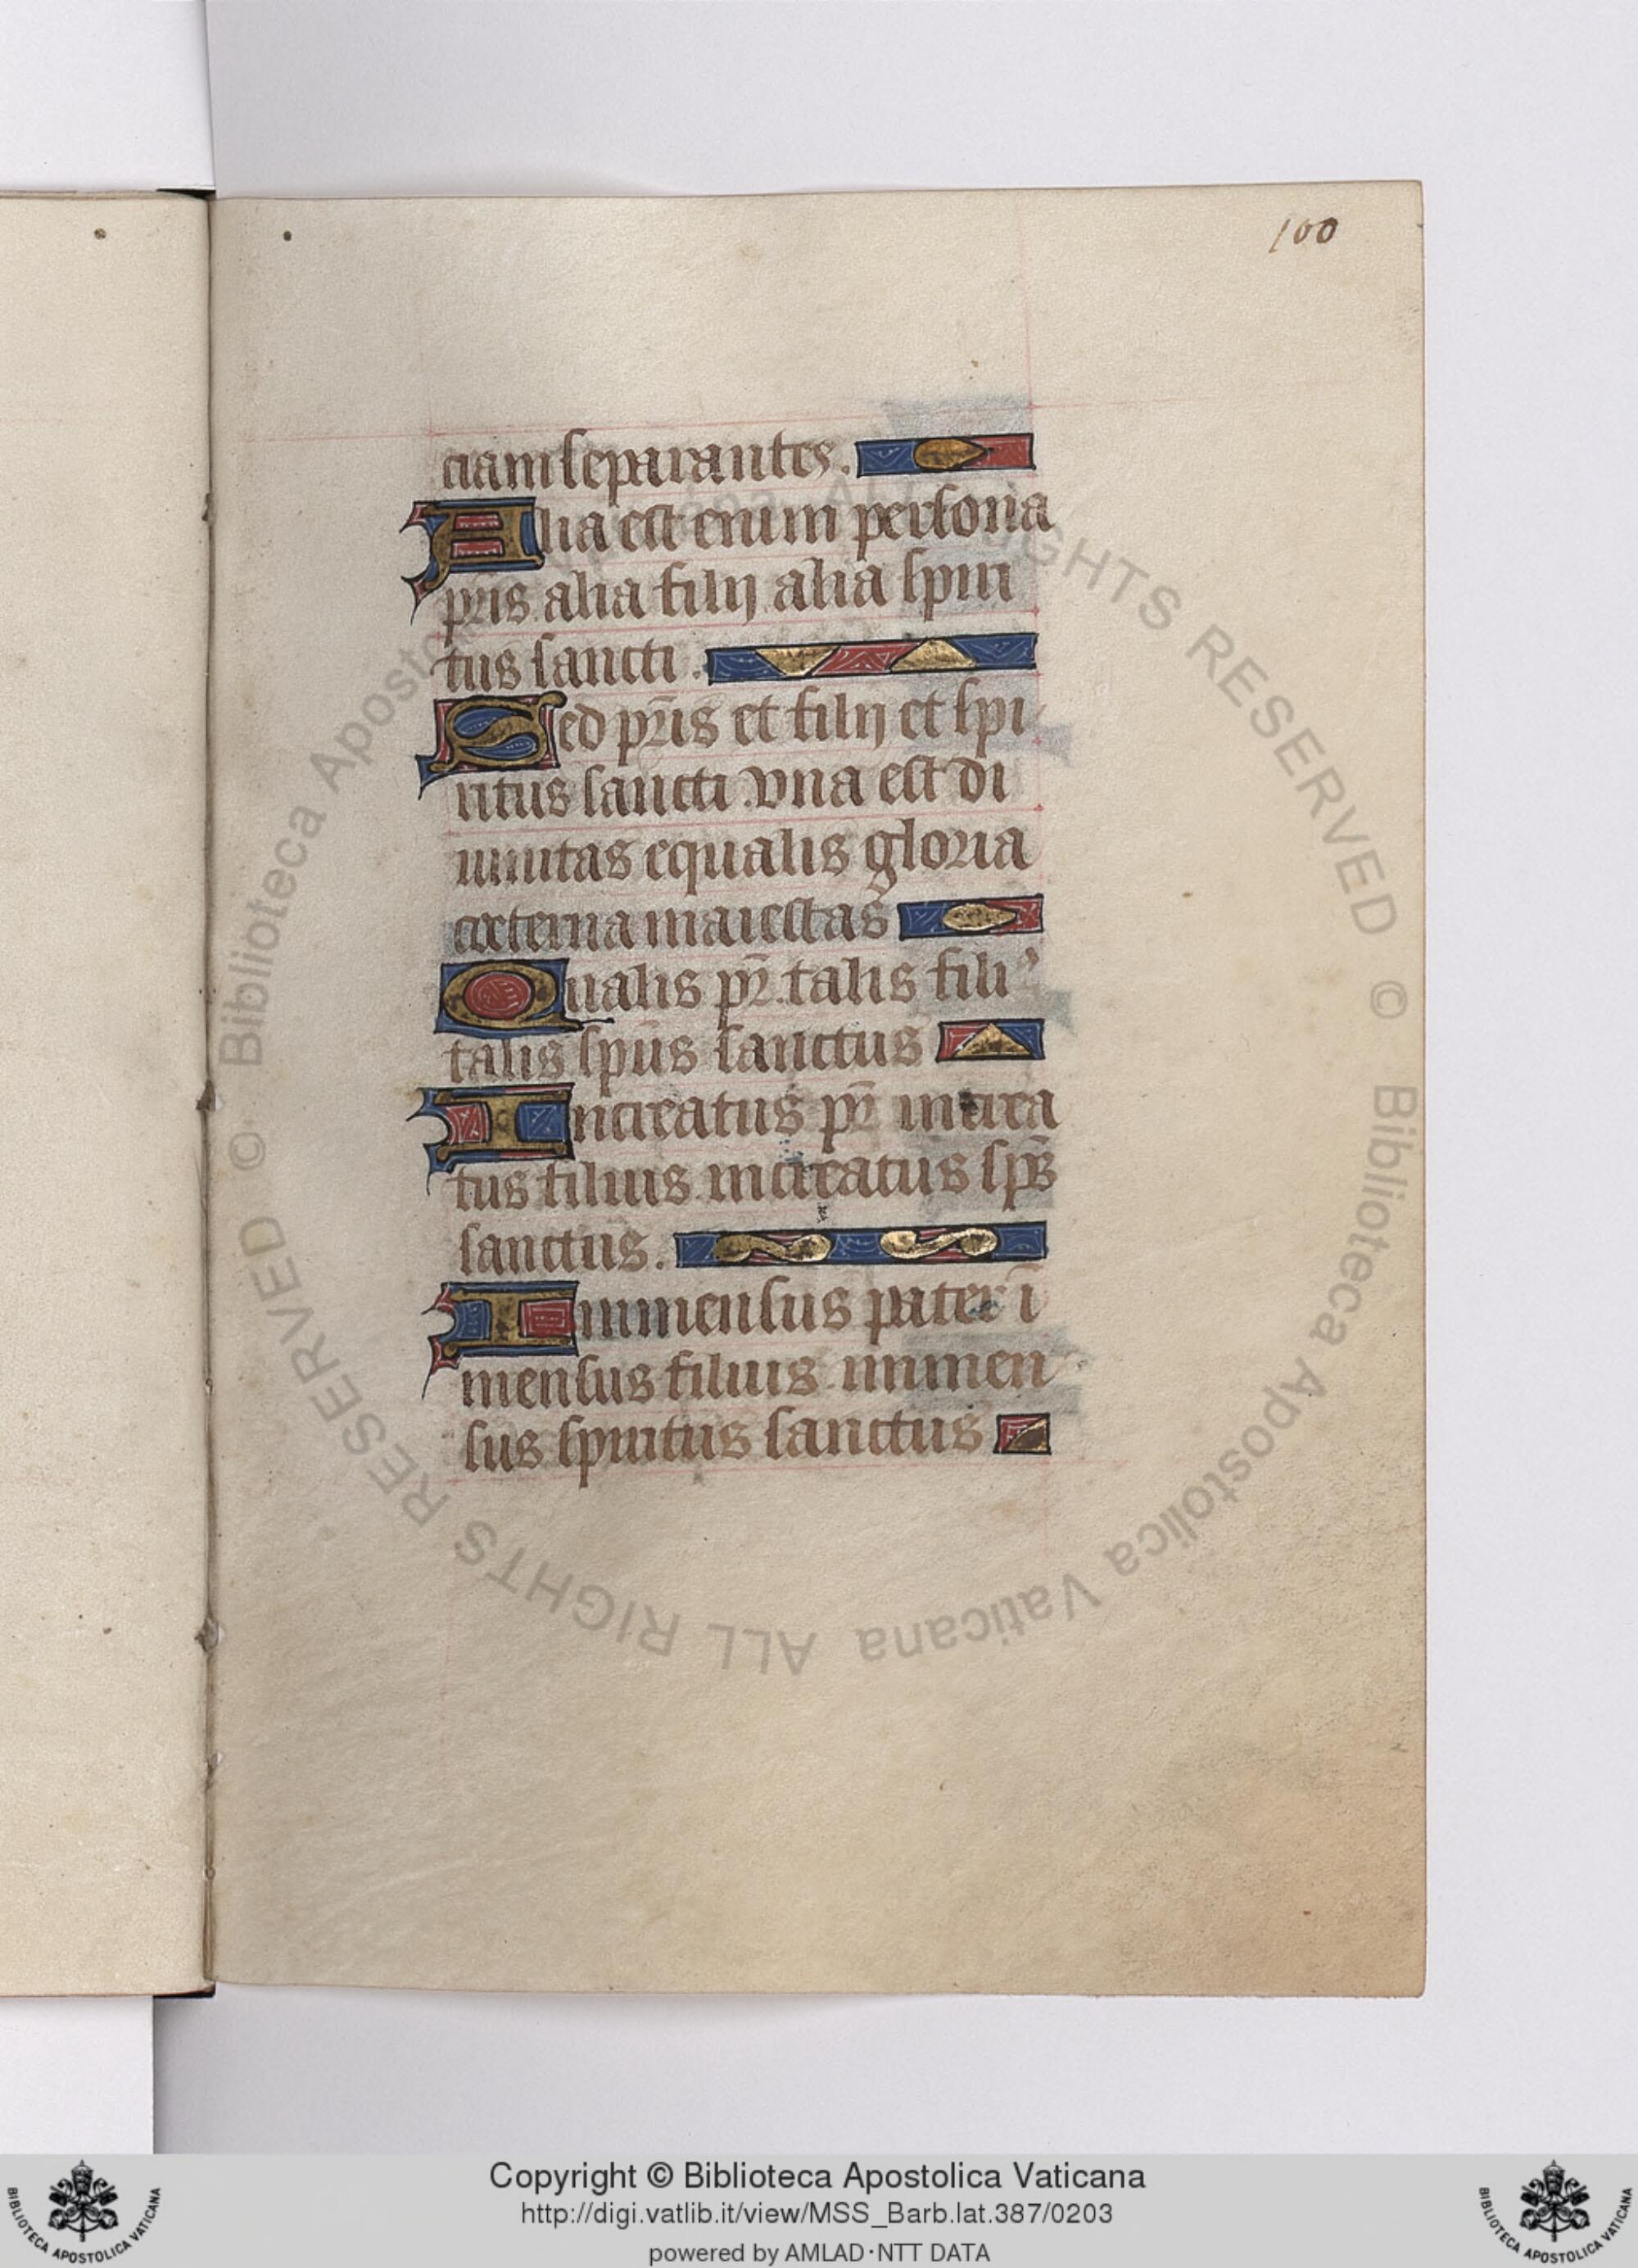 100
ciam separantes.
Alia est enim persona
pr̄is alia filij alia spiri
tus sancti.
Sed pr̄is et filij et spi
ritus sancti vna est di
uinitas equalis gloria
coeterna maiestas
Qualis pr̄ talis fili⁹
talis sp̄us sanctus
Increatus pr̄ increa
tus filius increatus sp̄s
sanctus.
Immensus pater ī
mensus filius immen
sus spiritus sanctus
© Biblioteca Apostolica Vaticana ALL RIGHTS RESERVED © Biblioteca Apostolica Vaticana ALL RIGHTS RESERVED
Copyright © Biblioteca Apostolica Vaticana
http://digi.vatlib.it/view/MSS_Barb.lat.387/0203
powered by AMLAD·NTT DATA
BIBLIOTECA APOSTOLICA VATICANA
BIBLIOTECA APOSTOLICA VATICANA